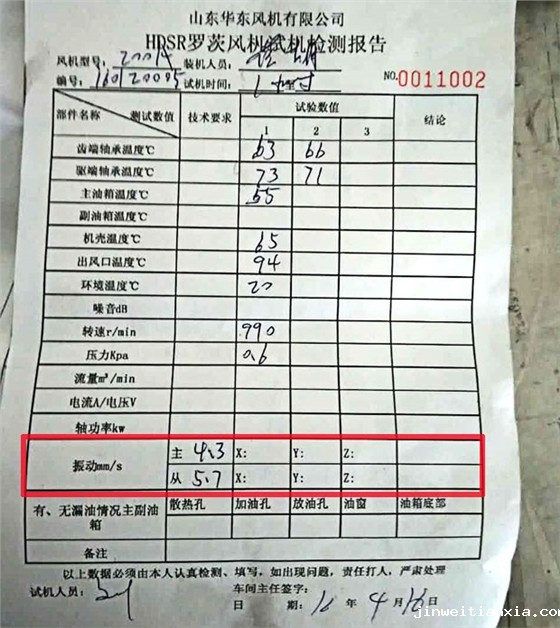 山东华东风机有限公司
HDSR罗茨风机试机检测报告
风机型号: 2001A 装机人员:
编号: 160120005 试机时间: 1小时
NO.0011002
部件名称 测试数值 技术要求 试验数值 结论
1 2 3
齿端轴承温度℃ 63 66
驱端轴承温度℃ 73 71
主油箱温度℃ 65
副油箱温度℃
机壳温度℃ 65
出风口温度℃ 94
环境温度℃ 20
噪音dB
转速r/min 990
压力Kpa 0.6
流量m³/min
电流A/电压V
轴功率kw
振动mm/s 主 4.3 X: Y: Z:
从 5.7 X: Y: Z:
有、无漏油情况主副油箱 散热孔 加油孔 放油孔 油窗 油箱底部
备注
以上数据必须由本人认真检测、填写,如出现问题,责任打人,严肃处理
试机人员: 车间主任签字:
日期: 16 年 4 月 16 日
jinweitianxia.com